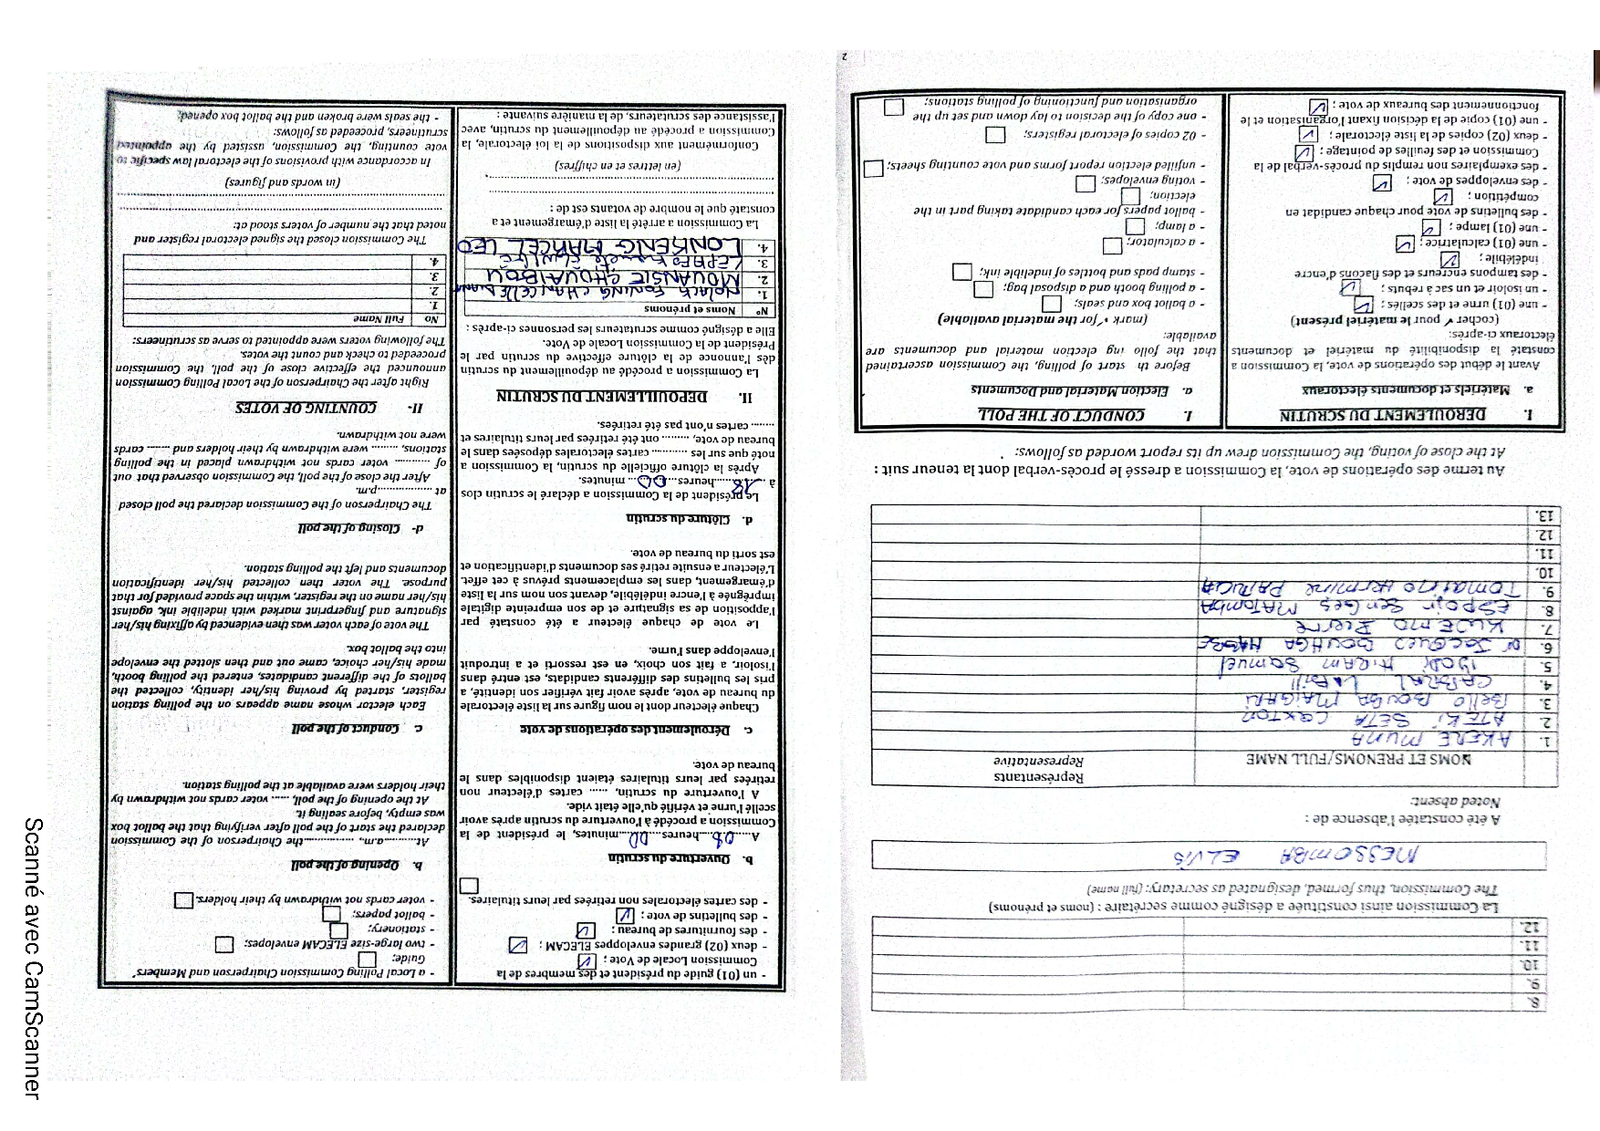 8.
9.
10.
11.
12.
La Commission ainsi constituée a désigné comme secrétaire : (noms et prénoms)
The Commission, thus formed, designated as secretary: (full name)
MESSOMBA ELVIS
A été constatée l'absence de :
Noted absent:
NOMS ET PRENOMS/FULL NAME
Représentants
Representative
1. AKERE MUNA
2. ATEKI SETA CAXTON
3. Bello BOUBA MAIGARI
4. CABRAL LIBII
5. IYODI HIRAM Samuel
6. Dr JACQUES BOUHGA HAGBE
7. KWEMO Pierre
8. ESPOIR Serges MATOMBA
9. TOMAINO HERMINE PATRICIA
10.
11.
12.
13.
Au terme des opérations de vote, la Commission a dressé le procès-verbal dont la teneur suit :
At the close of voting, the Commission drew up its report worded as follows:
I. DEROULEMENT DU SCRUTIN
a. Matériels et documents électoraux
Avant le début des opérations de vote, la Commission a
constaté la disponibilité du matériel et documents
électoraux ci-après:
(cocher ✓ pour le matériel présent)
- une (01) urne et des scellés ;
- un isoloir et un sac à rebuts ;
- des tampons encreurs et des flacons d'encre
indélébile ;
- une (01) calculatrice ;
- une (01) lampe ;
- des bulletins de vote pour chaque candidat en
compétition ;
- des enveloppes de vote ;
- des exemplaires non rempli du procès-verbal de la
Commission et des feuilles de pointage ;
- deux (02) copies de la liste électorale ;
- une (01) copie de la décision fixant l'organisation et le
fonctionnement des bureaux de vote ;
I. CONDUCT OF THE POLL
a. Election Material and Documents
Before th start of polling, the Commission ascertained
that the follo ing election material and documents are
available:
(mark ✓ for the material available)
- a ballot box and seals;
- a polling booth and a disposal bag;
- stamp pads and bottles of indelible ink;
- a calculator;
- a lamp;
- ballot papers for each candidate taking part in the
election;
- voting envelopes;
- unfilled election report forms and vote counting sheets;
- 02 copies of electoral registers;
- one copy of the decision to lay down and set up the
organisation and functioning of polling stations;
2
- un (01) guide du président et des membres de la
Commission Locale de Vote ;
- deux (02) grandes enveloppes ELECAM ;
- des fournitures de bureau ;
- des bulletins de vote ;
- des cartes électorales non retirées par leurs titulaires.
b. Ouverture du scrutin
A 08 heures 00 minutes, le président de la
Commission a procédé à l'ouverture du scrutin après avoir
scellé l'urne et vérifié qu'elle était vide.
A l'ouverture du scrutin, ...... cartes d'électeur non
retirées par leurs titulaires étaient disponibles dans le
bureau de vote.
c. Déroulement des opérations de vote
Chaque électeur dont le nom figure sur la liste électorale
du bureau de vote, après avoir fait vérifier son identité, a
pris les bulletins des différents candidats, est entré dans
l'isoloir, a fait son choix, en est ressorti et a introduit
l'enveloppe dans l'urne.
Le vote de chaque électeur a été constaté par
l'apposition de sa signature et de son empreinte digitale
imprégnée à l'encre indélébile, devant son nom sur la liste
d'émargement, dans les emplacements prévus à cet effet.
L'électeur a ensuite retiré ses documents d'identification et
est sorti du bureau de vote.
d. Clôture du scrutin
Le président de la Commission a déclaré le scrutin clos
à 18 heures 00 minutes.
Après la clôture officielle du scrutin, la Commission a
noté que sur les .......... cartes électorales déposées dans le
bureau de vote, ......... ont été retirées par leurs titulaires et
........ cartes n'ont pas été retirées.
II. DEPOUILLEMENT DU SCRUTIN
La Commission a procédé au dépouillement du scrutin
dès l'annonce de la clôture effective du scrutin par le
Président de la Commission Locale de Vote.
Elle a désigné comme scrutateurs les personnes ci-après :
N° Noms et prénoms
1. FONING CHANCELLE
2. MOUANSIE CHOUAIBOU
3.
4. LONKENG MARCEL LEO
La Commission a arrêté la liste d'émargement et a
constaté que le nombre de votants est de :
(en lettres et en chiffres)
Conformément aux dispositions de la loi électorale, la
Commission a procédé au dépouillement du scrutin, avec
l'assistance des scrutateurs, de la manière suivante :
- a Local Polling Commission Chairperson and Members'
Guide;
- two large-size ELECAM envelopes;
- stationery;
- ballot papers;
- voter cards not withdrawn by their holders.
b. Opening of the poll
At...............a.m., ...............the Chairperson of the Commission
declared the start of the poll after verifying that the ballot box
was empty, before sealing it.
At the opening of the poll, ...... voter cards not withdrawn by
their holders were available at the polling station.
c. Conduct of the poll
Each elector whose name appears on the polling station
register, started by proving his/her identity, collected the
ballots of the different candidates, entered the polling booth,
made his/her choice, came out and then slotted the envelope
into the ballot box.
The vote of each voter was then evidenced by affixing his/her
signature and fingerprint marked with indelible ink, against
his/her name on the register, within the space provided for that
purpose. The voter then collected his/her identification
documents and left the polling station.
d- Closing of the poll
The Chairperson of the Commission declared the poll closed
at ..................p.m.
After the close of the poll, the Commission observed that out
of .......... voter cards not withdrawn placed in the polling
stations, ........ were withdrawn by their holders and ........ cards
were not withdrawn.
II- COUNTING OF VOTES
Right after the Chairperson of the Local Polling Commission
announced the effective close of the poll, the Commission
proceeded to check and count the votes.
The following voters were appointed to serve as scrutineers:
No Full Name
1.
2
3
4.
The Commission closed the signed electoral register and
noted that the number of voters stood at:
(in words and figures)
In accordance with provisions of the electoral law specific to
vote counting, the Commission, assisted by the appointed
scrutineers, proceeded as follows:
- the seals were broken and the ballot box opened;
Scanné avec CamScanner